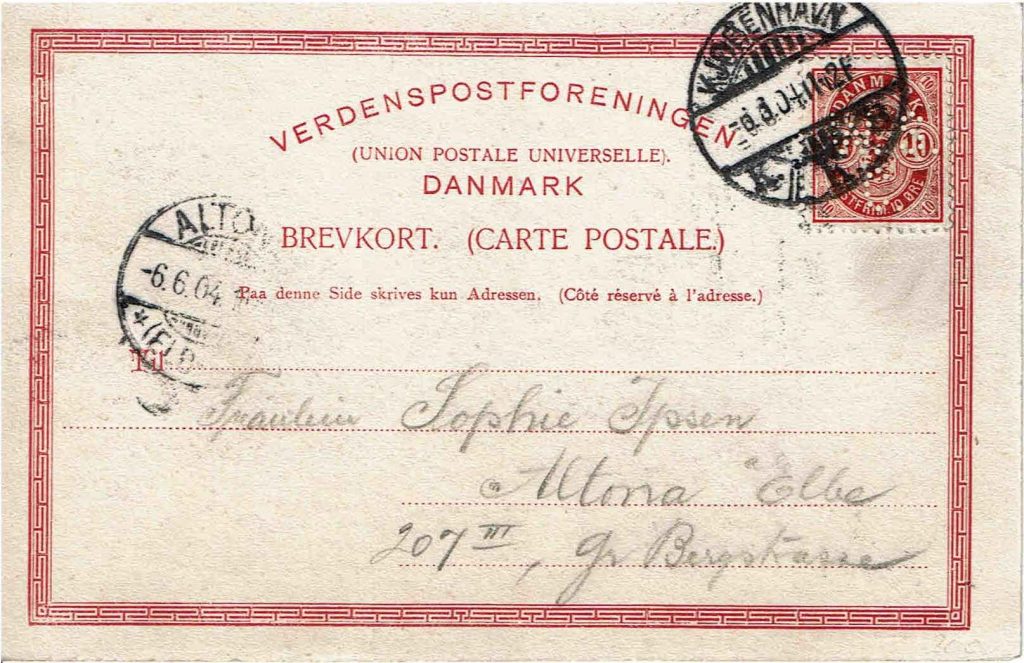 KJØBENHAVN
DANMARK
10 10
POSTFRIM. 10 ØRE
VERDENSPOSTFORENINGEN
(UNION POSTALE UNIVERSELLE).
DANMARK
BREVKORT. (CARTE POSTALE.)
Paa denne Side skrives kun Adressen. (Côté réservé à l'adresse.)
ALTO
-6.6.04.
Til
Fräulein Sophie Ipsen
Altona a Elbe
207 III, Gr Bergstrasse